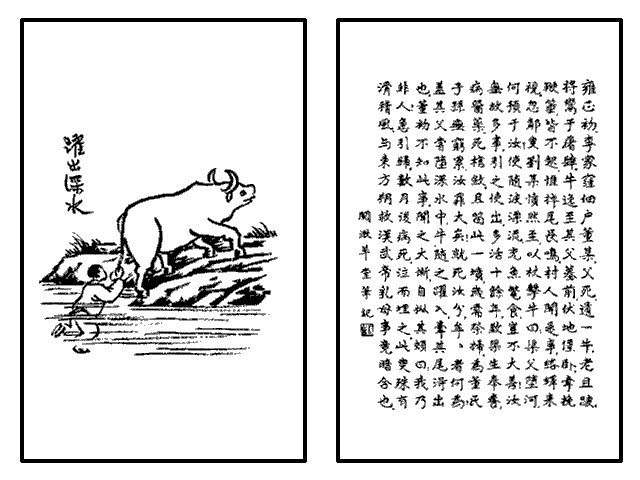 躍出深水
雍正初李家窪佃户董某父死遺一牛老且跛
將鬻于屠肆牛逸至其父墓前伏地僵卧牽挽
鞭箠皆不起惟掉尾長鳴村人聞是事絡繹來
視忽鄰叟劉某憤然至以杖擊牛曰渠父墮河
何預于汝使隨波漂流充魚鱉食豈不大善汝
無故多事引之使出多活十餘年致渠生奉養
病醫藥死棺斂且留此一墳歲需祭掃為董氏
子孫無窮累汝罪大矣就死汝分牟牟者何為
蓋其父嘗墮深水中牛隨之躍入牽其尾得出
也董初不知此事聞之大慚自批其頰曰我乃
非人急引歸數月後病死泣而埋之此叟殊有
滑稽風與東方朔救漢武帝乳母事竟暗合也
閱微草堂筆記